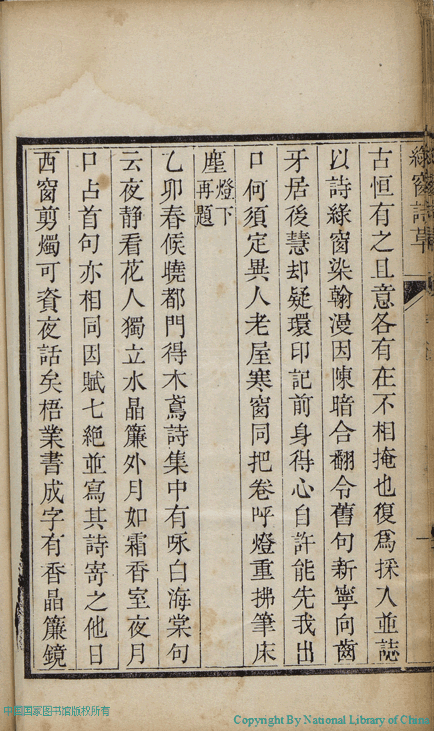 綠窗詩草
古恒有之且意各有在不相掩也復爲採入並誌
以詩綠窗染翰漫因陳暗合翻令舊句新寧向齒
牙居後慧却疑環印記前身得心自許能先我出
口何須定異人老屋寒窗同把卷呼燈重拂筆床
塵燈下再題
乙卯春候曉都門得木鳶詩集中有咏白海棠句
云夜靜看花人獨立水晶簾外月如霜香室夜月
口占首句亦相同因賦七絕並寫其詩寄之他日
西窗剪燭可資夜話矣梧業書成字有香晶簾鏡
中国国家图书馆版权所有
Copyright By National Library of China